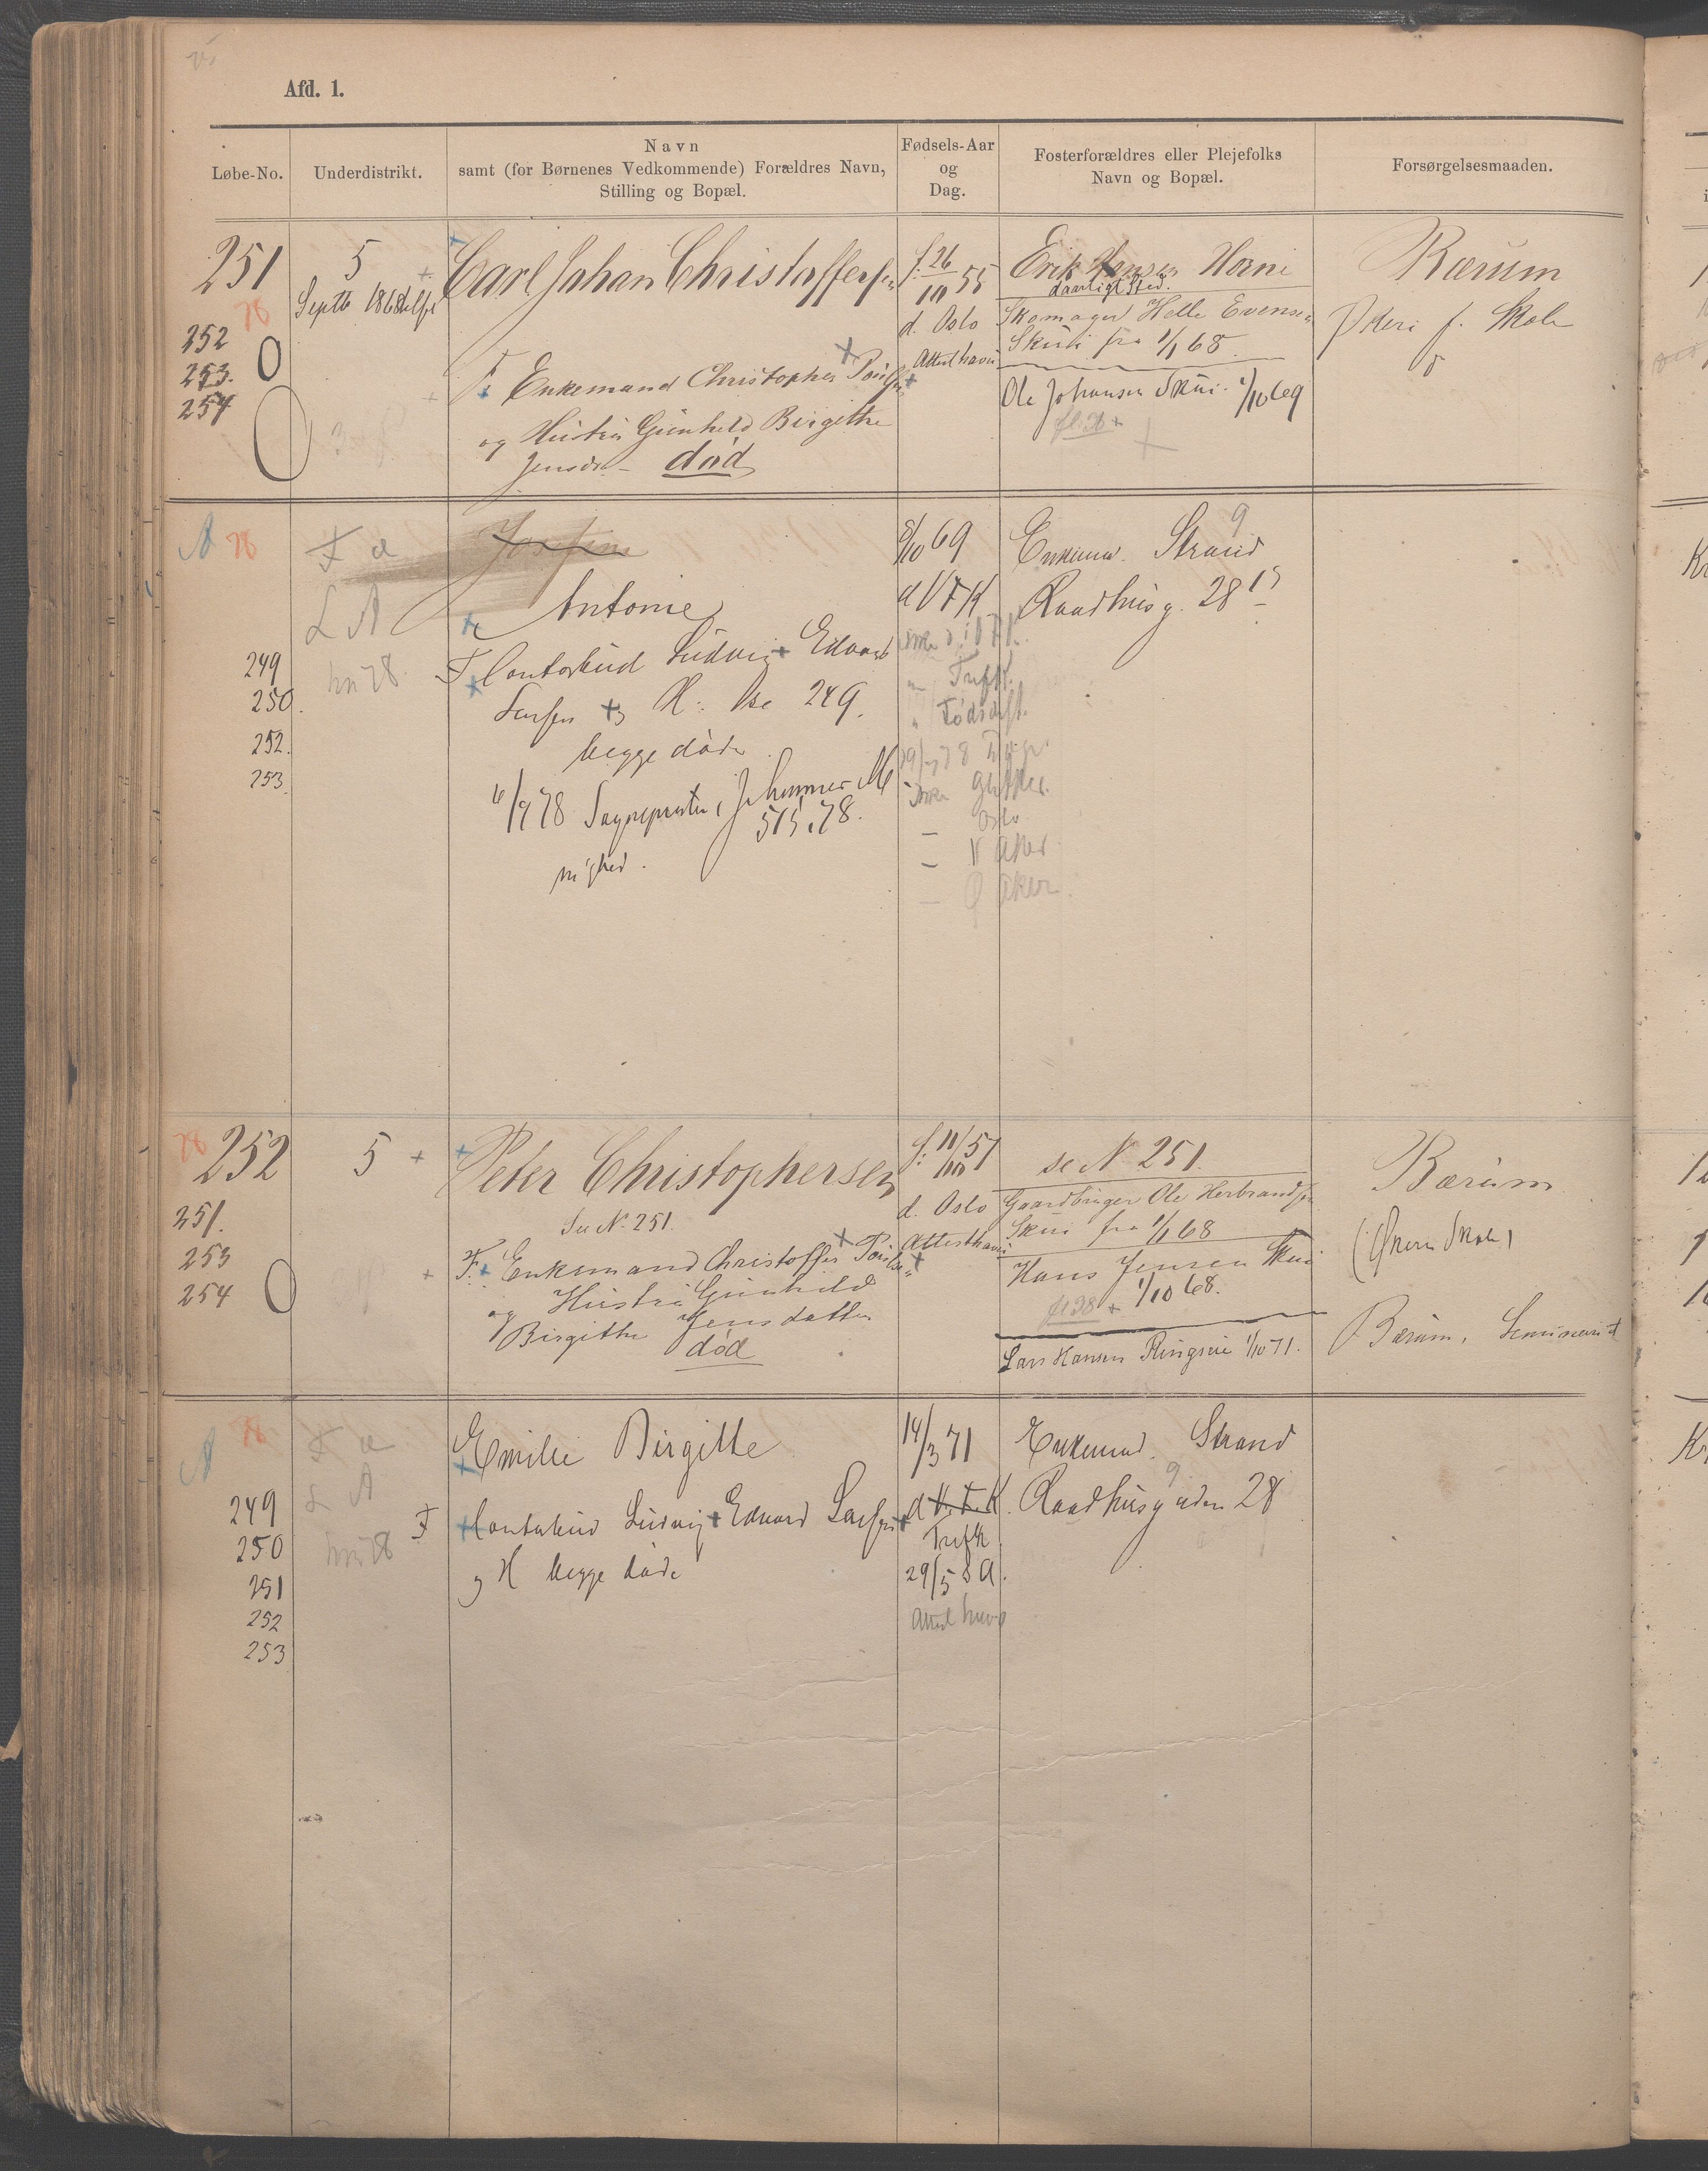 Afd. 1.
Løbe-No.
Underdistrikt.
Navn
samt (for Børnenes Vedkommende) Forældres Navn,
Stilling og Bopæl.
Fødsels-Aar
og
Dag.
Fosterforældres eller Plejefolks
Navn og Bopæl.
Forsørgelsesmaaden.
251
78
252
253.
254
5
Septb 1868
Carl Johan Christoffersen
F. Enkemand Christopher
og Hustru Gunhild Birgithe
Jensdr - død
f. 26/10 55
d. Oslo
Attest havis
Erik Hansen Horni
daarligt Sted.
Skomager Helle Evensen
Skui fra 1/1 68
Ole Johansen Skui. 1/10 69
Bærum
Skole
A 78
249
250.
252.
253.
F a
L A
Josefine
Antonie
F Contorbud Ludvig Edvard
Larsen og H: Se 249.
begge døde
515.78.
8/10 69
d V F K
Trefk.
Oslo
V Aker
Ø Aker.
Enkemd. Strand
9
Raadhusg. 28
78 252
251.
253
254
5
Peter Christophersen
Se N. 251.
F. Enkemand Christoffer
og Hustru Gunhild
Birgithe Jensdatter
død
f. 11/10 57
d. Oslo
Attest havis
se N 251.
Gaardbruger Ole Herbrandsen
Skui fra 1/1 68
Hans Jensen Skui
1/10 68.
Lars Hansen Ringeri 1/10 71.
Bærum
(Økern Skole)
Bærum, Seminarist
A 78
249
250
251
252
253
F a
L A
Emilie Birgitte
F Contorbud Ludvig Edvard Larsen
og H begge døde
14/3 71
d V. F. K.
Trefk
29/5 S A.
Attest havis
Enkemd. Strand
9
Raadhusgaden 28